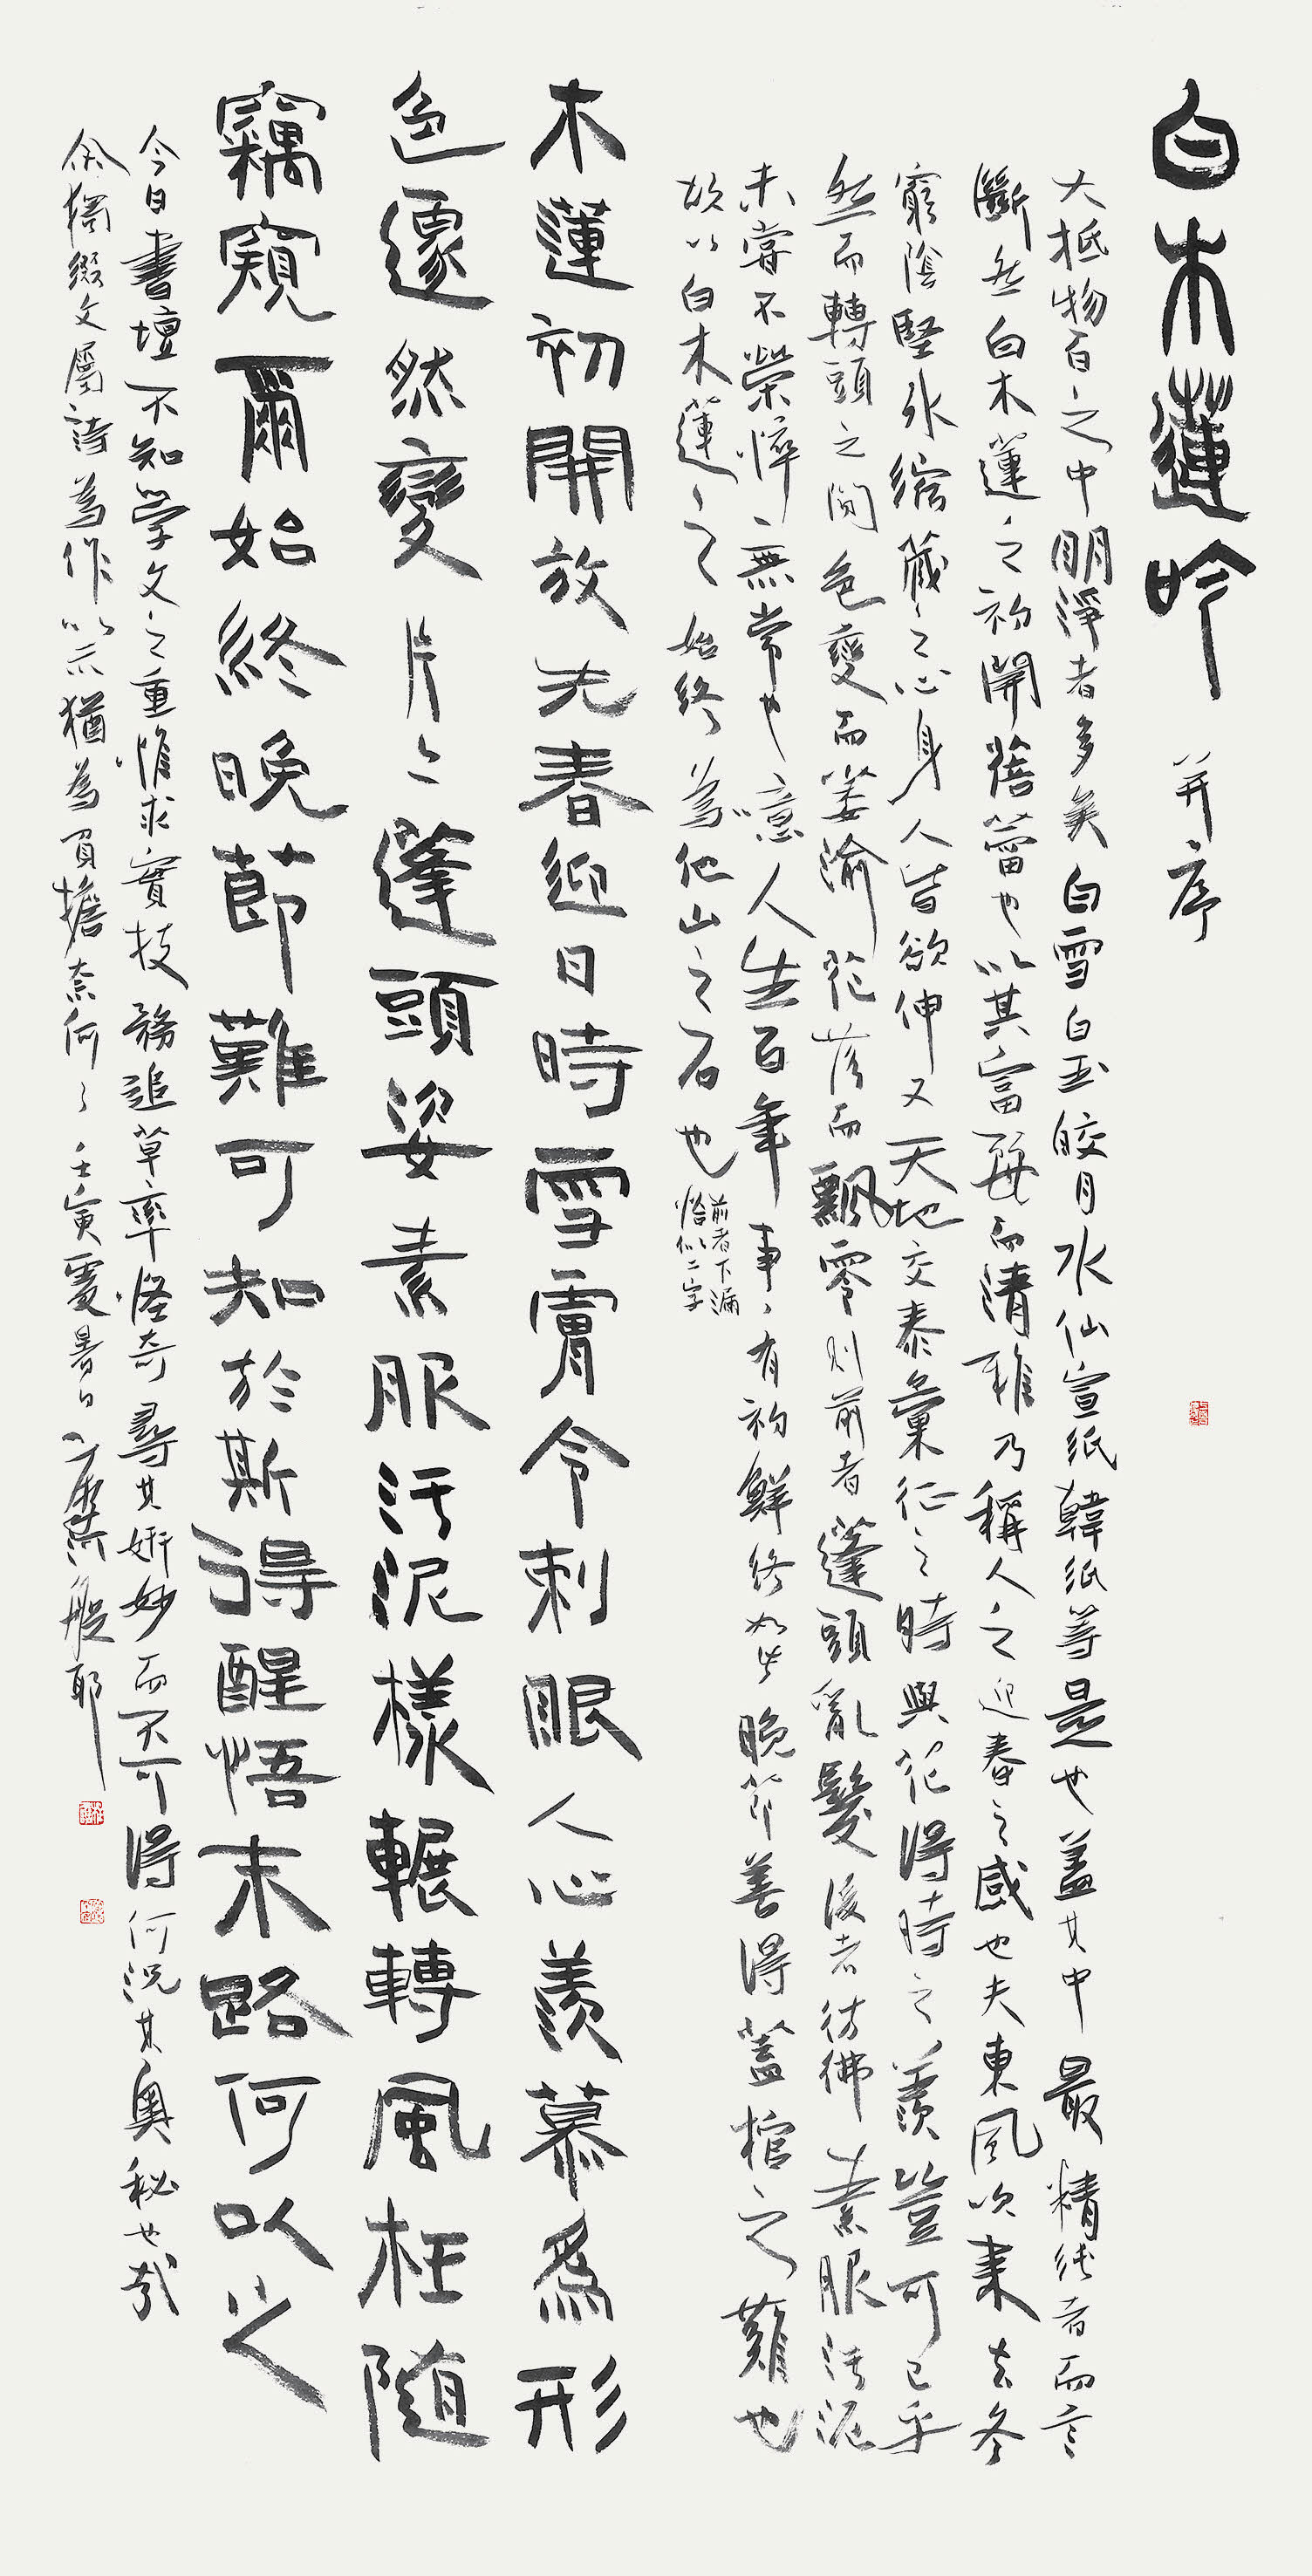 白木蓮吟 并序
大抵物百之中明淨者多矣白雪白玉皎月水仙宣紙韓紙等是也蓋其中最精純者而言
斷然白木蓮之初開蓓蕾也以其富麗而清雅乃稱人之迎春之感也夫東風吹來去冬
窮陰堅氷縮藏之心身人皆欲伸又天地交泰彙征之時與花得時之羨豈可已乎
然而轉頭之間色變而萎渝花落而飄零則前者蓬頭亂髮後者彷彿素服污泥
未嘗不榮悴無常也噫人生百年事〻有初鮮終如此晚節善得蓋棺之難也
故以白木蓮之始終為他山之石也
前者下漏
恰似二字
木蓮初開放先春迎日時雪膚令刺眼人心羨慕為形
色遽然變片〻蓬頭姿素服污泥樣輾轉風枉隨
竊窺爾始終晚節難可知於斯得醒悟末路何以之
今日書壇不知學文之重惟求實技務追草率怪奇尋其妍妙而不可得何況其奧秘也哉
余獨綴文屬詩為作以示猶為負擔奈何〻壬寅處暑日 般耶